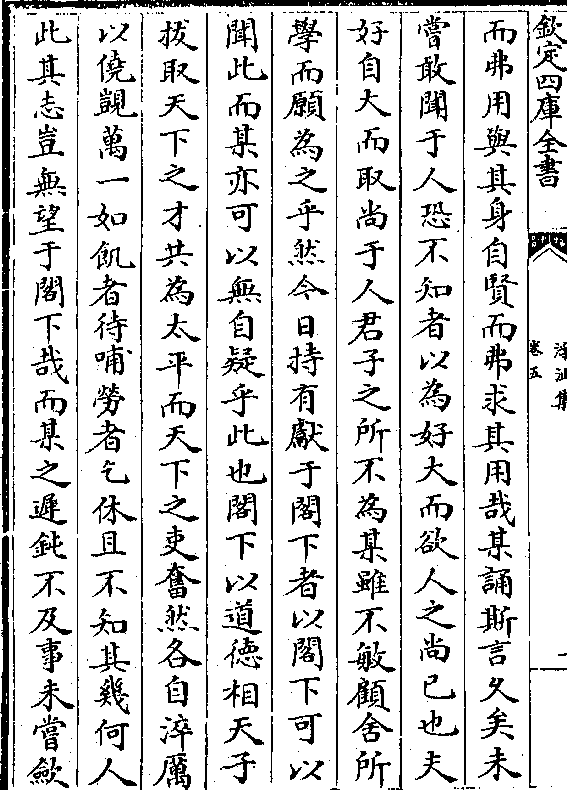 欽定四庫全書
卷五
而弗用與其身自賢而弗求其用哉某誦斯言久矣未
嘗敢聞于人恐不知者以為好大而欲人之尚已也夫
好自大而取尚于人君子之所不為某雖不敏顧舍所
學而願為之乎然今日持有獻于閣下者以閣下可以
聞此而某亦可以無自疑乎此也閣下以道德相天子
拔取天下之才共為太平而天下之吏奮然各自淬厲
以僥覬萬一如飢者待哺勞者乞休且不知其幾何人
此其志豈無望于閣下哉而某之遲鈍不及事未嘗歛